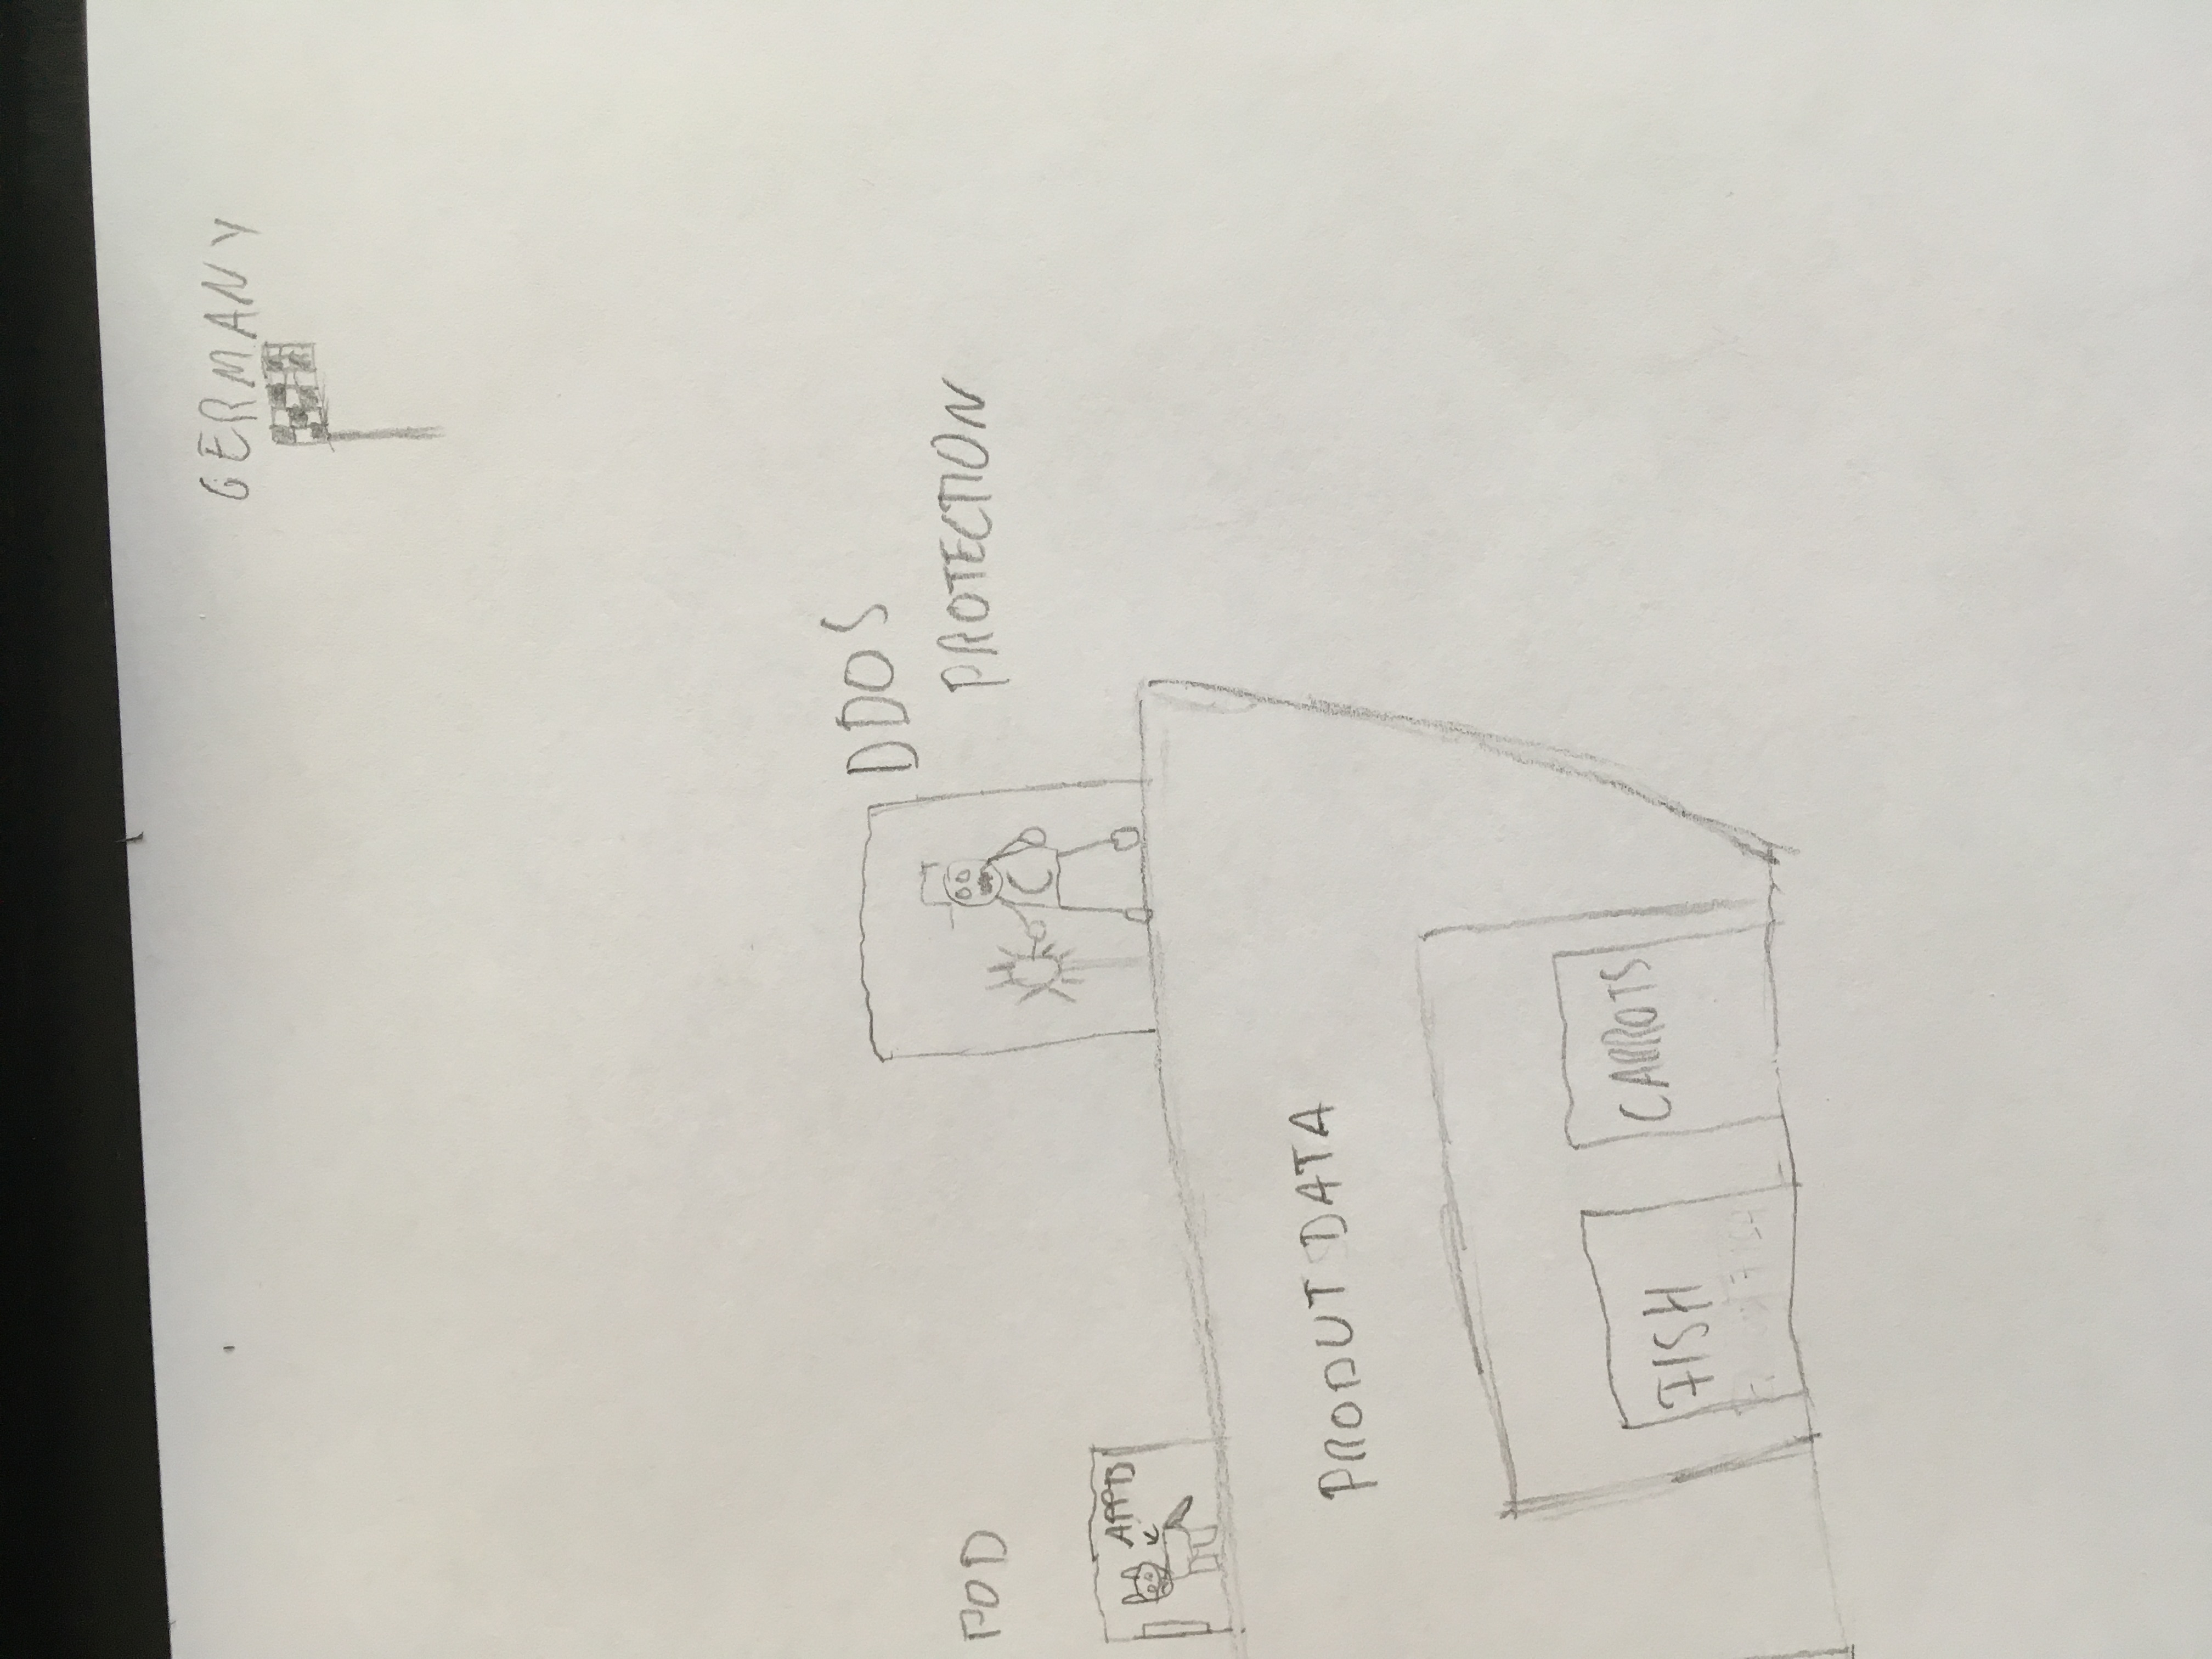 GERMANY
DDOS
PROTECTION
POD
APPB
PRODUT DATA
FISH
CARROTS